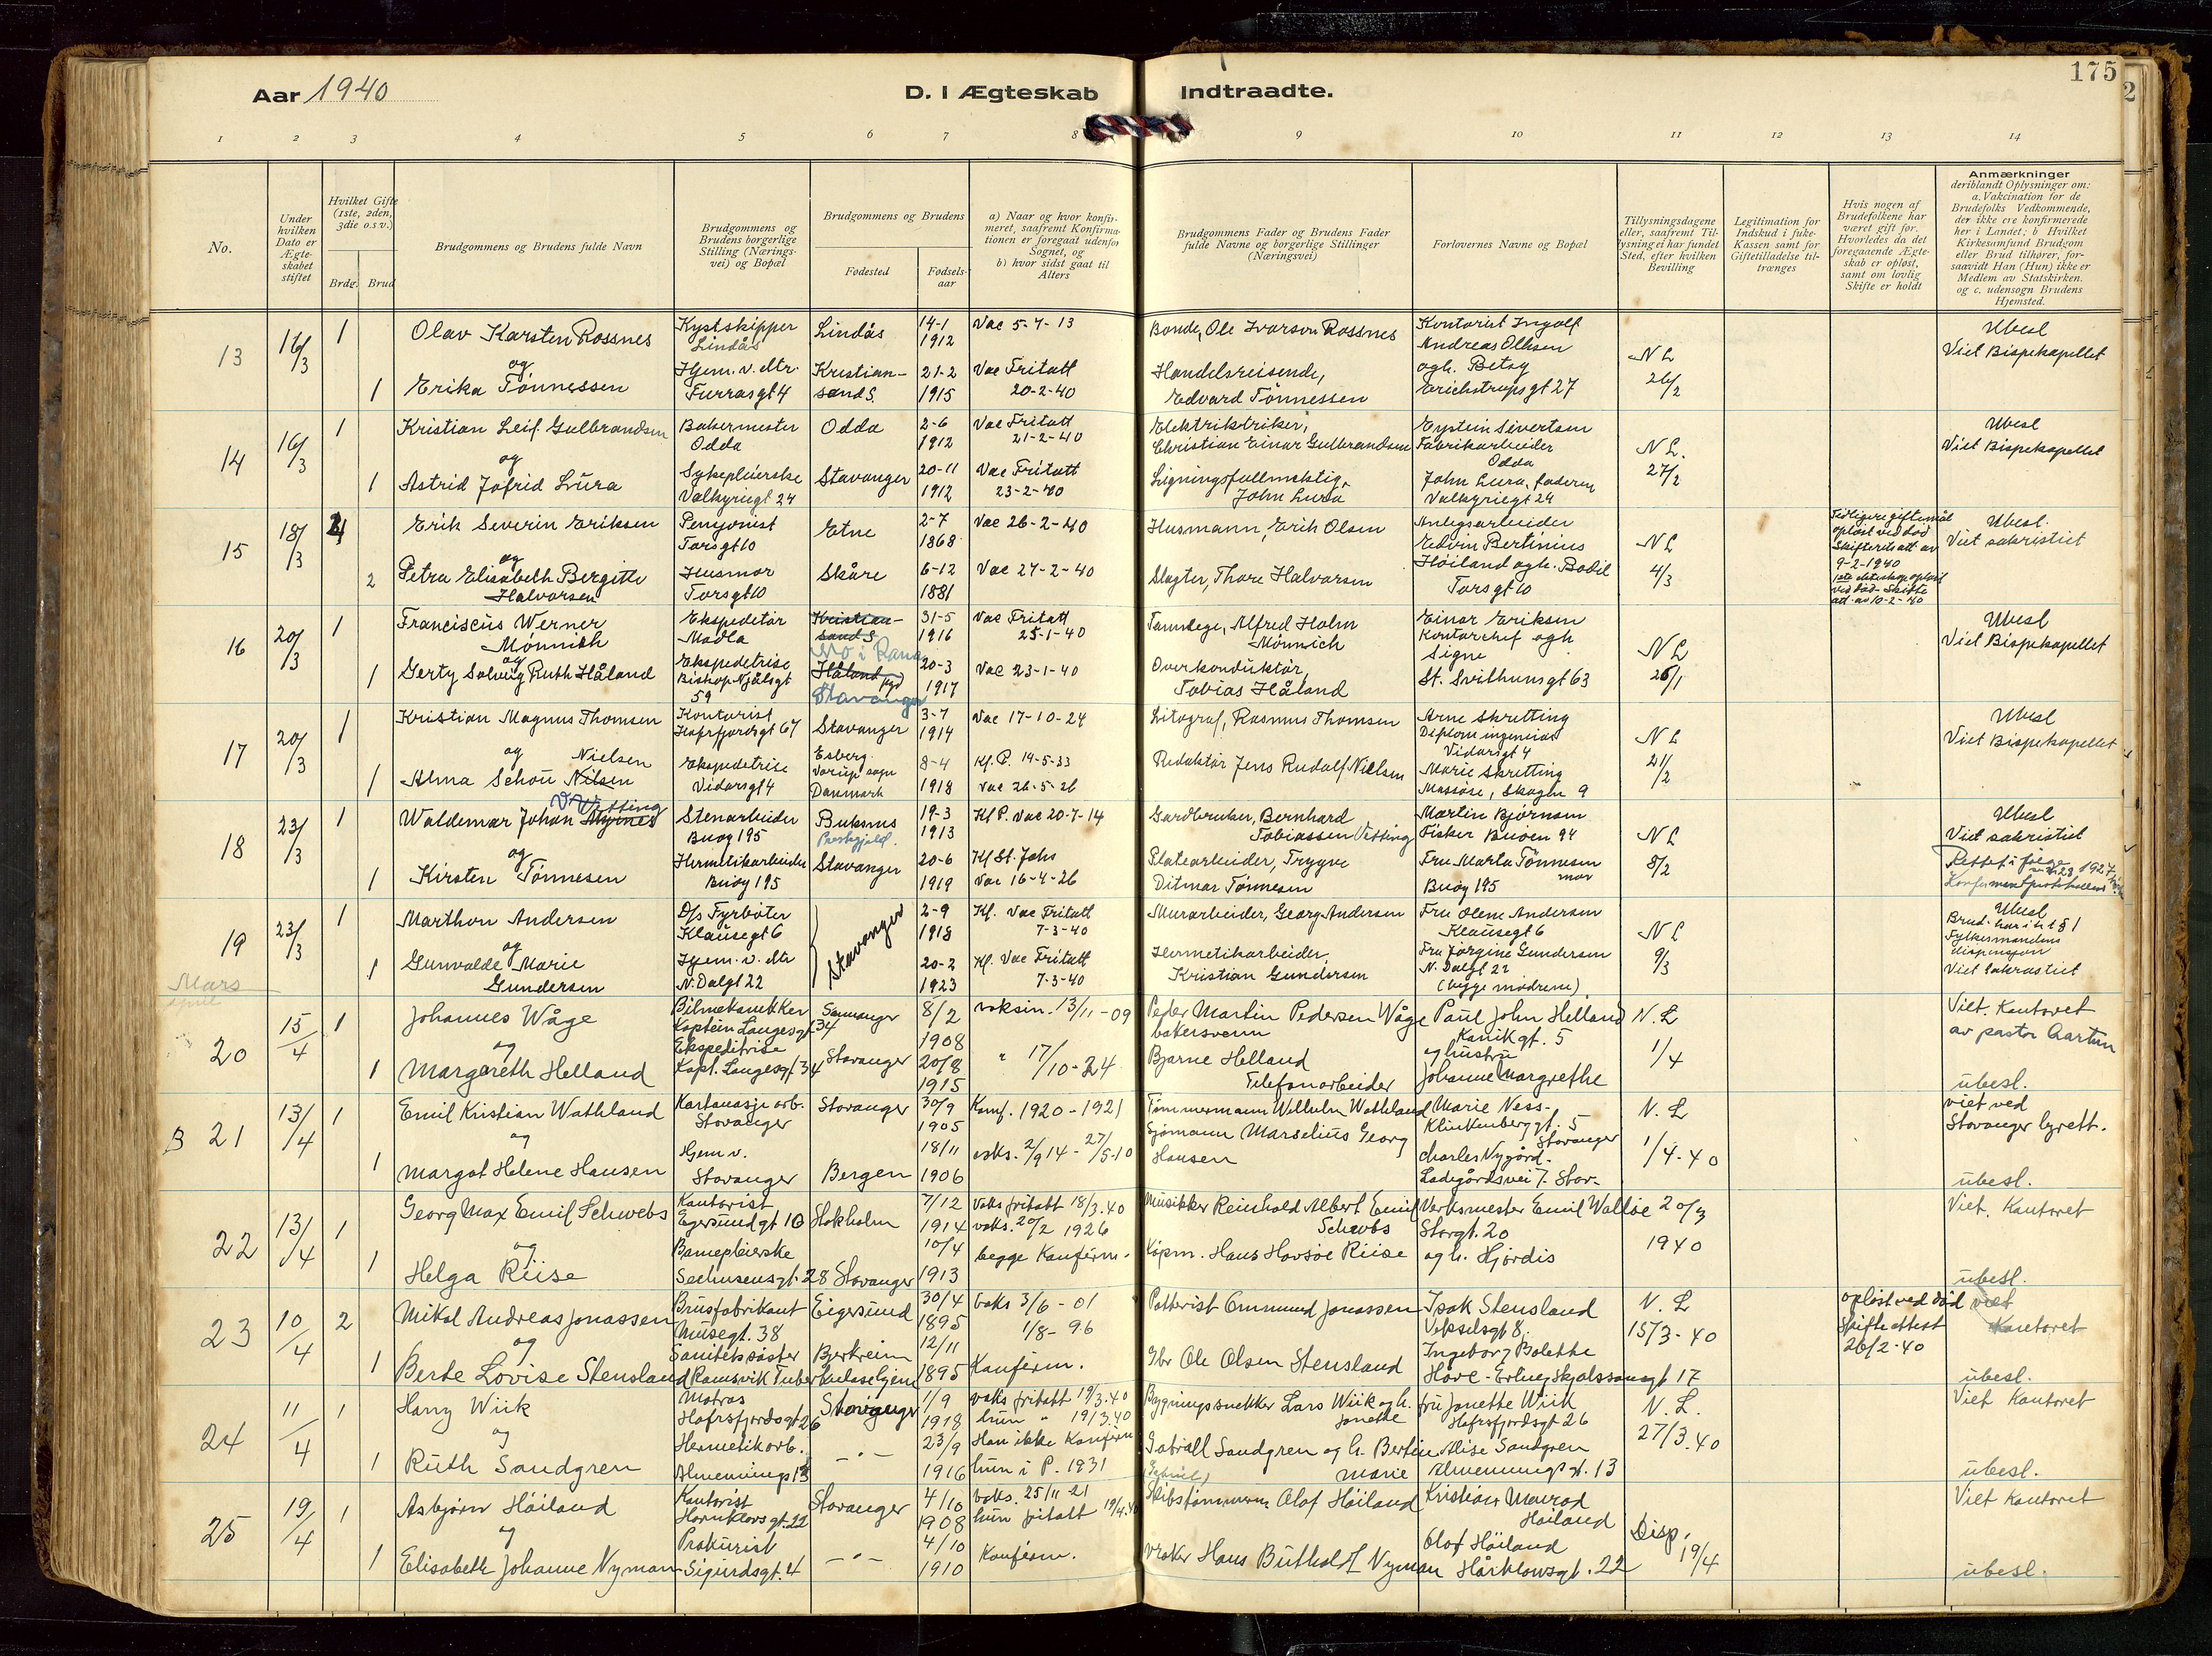 Aar 1940
D. I Ægteskab Indtraadte.
175
1 2 3 4 5 6 7 8 9 10 11 12 13 14
No.
Under hvilken Dato er Ægteskabet stiftet
Hvilket Gifte (1ste, 2den, 3die o.s.v.)
Brdg. Brud
Brudgommens og Brudens fulde Navn
Brudgommens og Brudens borgerlige Stilling (Næringsvei) og Bopæl
Brudgommens og Brudens
Fødested
Fødselsaar
a) Naar og hvor konfirmeret, saafremt Konfirmationen er foregaat udenfor Sognet, og
b) hvor sidst gaat til Alters
Brudgommens Fader og Brudens Fader fulde Navne og borgerlige Stillinger (Næringsvei)
Forlovernes Navne og Bopæl
Tillysningsdagene eller, saafremt Tillysning ei har fundet Sted, efter hvilken Bevilling
Legitimation for Indskud i fuke-Kassen samt for Giftetilladelse tiltrænges
Hvis nogen af Brudefolkene har været gift før. Hvorledes da det foregaaende Ægteskab er opløst, samt om lovlig Skifte er holdt
Anmærkninger
deriblandt Oplysninger om: a. Vakcination for de Brudefolks Vedkommende, der ikke ere konfirmerede her i Landet; b Hvilket Kirkesamfund Brudgom eller Brud tilhører, forsaavidt Han (Hun) ikke er Medlem av Statskirken. og c. udensogn Brudens Hjemsted.
13 16/3 1 Olav Karsten Rossnes Kystskipper Lindås Lindås 14-1 1912 Vac 5-7-13 Bonde, Ole Ivarson Rossnes Kontorist Ingolf Andreas Olsen NL 26/2 Ubesl Viet Bispekapellet
og
1 Erika Tönnessen Hjem. v. Mr. Furrasgt 4 Kristiansand S. 21-2 1915 Vac Fritatt 20-2-40 Handelsreisende, Edvard Tönnessen ogh. Betsy Erichstrupsgt 27
14 16/3 1 Kristian Leif Gulbrandsen Bakermester Odda Odda 2-6 1912 Vac Fritatt 21-2-40 Elektriktriker, Christian Einar Gulbrandsen Eystein Sivertsen Fabrikarbeider Odda NL. 27/2 Ubesl Viet Bispekapellet
og
1 Astrid Jofrid Lura Sykepleierske Valkyriegt 24 Stavanger 20-11 1912 Vac Fritatt 23-2-40 Ligningsfullmektig, John Lura John Lura, faderen Valkyriegt 24
15 18/3 2 Erik Severin Eriksen Pensjonist Torsgt 10 Etne 2-7 1868 Vac 26-2-40 Husmann, Erik Olsen Anlegsarbeider Edvin Bertinius NL 4/3 Tidligere giftemål opløst ved död Skifteratt av 9-2-1940 Ubesl. Viet sakristiet
og
2 Petra Elisabeth Bergitte Halvorsen Husmor Torsgt 10 Skåre 6-12 1881 Vac 27-2-40 Slagter, Thore Halvorsen Höiland ogh. Bodil Torsgt 10 ved död. Skifte att. av 10-2-40
16 20/3 1 Franciscus Werner Mönnich Ekspeditör Madla Kristiansand S. Mo i Rana 31-5 1916 Vac Fritatt 25-1-40 Tannlege, Alfred Holm Mönnich Einar Eriksen Kontorchef ogh Signe NL 26/1 Ubesl Viet Bispekapellet
og
1 Gerty Solveig Ruth Håland Ekspeditrise Biskop Njålsgt 59 Håland Stavanger 20-3 1917 Vac 23-1-40 Overkonduktör, Tobias Håland St. Svithunsgt 63
17 20/3 1 Kristian Magnus Thomsen Kontorist Hafrsfjordsgt 67 Stavanger 3-7 1914 Vac 17-10-24 Litograf, Rasmus Thomsen Arne Skretting Diplom ingeniör Vidarsgt 4 NL 21/2 Ubesl Viet Bispekapellet
og Nielsen
1 Alma Schou Nilsen Ekspeditrise Vidarsgt 4 Esberg Vorup sogn Danmark 8-4 1918 Kf. P. 14-5-33 Vac 26-5-26 Redaktör Jens Rudolf Nielsen Marie Skretting Massöse, Skagen 9
18 23/3 1 Waldemar Johan Vetting Stenarbeider Buøy 195 Buksnes Prestegjeld. 19-3 1913 Kf P. Vac 20-7-14 Gardbruker, Bernhard Tobiassen Vetting Martin Björnsen Fisker Buøen 94 NL 8/2 Ubesl Viet sakristiet
og
1 Kirsten Tönnesen Hermetikarbeider Buøy 195 Stavanger 20-6 1919 Kf St. Johs Vac 16-4-26 Platearbeider, Trygve Ditmar Tönnesen Fru Marta Tönnesen mor Buøy 195 Rettet i følge 1927 Konfirmantprotokollens
19 23/3 1 Marthon Andersen D/s Fyrböter Klausegt 6 Stavanger 2-9 1918 Kf. Vac Fritatt 7-3-40 Murarbeider, Georg Andersen Fru Olene Andersen Klausegt 6 NL 9/3 Ubesl Brud. har iht § 1 Fylkesmandens dispensjon Viet Sakrastiet
og
1 Gunvalde Marie Gundersen Hjem. v. Mr N. Dalgt 22 20-2 1923 Kf. Vac Fritatt 7-3-40 Hermetikarbeider, Kristian Gundersen Fru Jörgine Gundersen N. Dalgt 22 (begge mödrene)
Mars
april
20 15/4 1 Johannes Våge Bilmekanikker Kaptein Langesgt 34 Stavanger 8/2 1908 vaksin. 13/11-09 Peder Martin Pedersen Våge bakersvenn Paul John Helland Kanikgt. 5 N.L 1/4 Viet. Kontoret av pastor Aartun
og
1 Margareth Helland Ekspeditrise Kapt. Langesgt 34 Stavanger 20/8 1915 " 17/10-24 Bjarne Helland Telefonarbeider og hustru Johanne Margrethe ubesl.
B 21 13/4 1 Emil Kristian Wathland Kartonasje arb. Stavanger Stavanger 30/9 1905 Konf. 1920-1921 Tömmermann Wilhelm Wathland Marie Ness- Klinkenberggt. 5 Stavanger N.L 1/4-40 viet ved Stavanger byrett.
og
1 Margot Helene Hansen Hjem v. Stavanger Bergen 18/11 1906 vaks. 2/9 14 - 27/5-10 Sjömann Marselius Georg Hansen Charles Nygård- Ladegårdsvei 7. Stav- ubesl.
22 13/4 1 Georg Max Emil Schwebs Kontorist Egersundgt 10 Stokholm 7/12 1914 Vaks fritatt 18/3.40 vaks. 20/2 1926 Musikker Reinhold Albert Emil Schwebs Verksmester Emil Walløe Storgt. 20 20/3 1940 Viet. Kontoret
og
1 Helga Riise Barnepleierske Seehusensgt. 28 Stavanger 10/4 1913 begge Konfirm. Kjöpm. Hans Hovsöe Riise og h. Hjördis ubesl.
23 10/4 2 Mikal Andreas Jonassen Brusfabrikant Musegt. 38 Eigersund 30/4 1895 vaks 3/6-01 1/8-96 Potterist Ommund Jonassen Isak Stensland Vekselsgt 8. N.L 15/3-40 oplöst ved död Skifte attest 26/2-40 viet Kontoret
og
1 Berte Lovise Stensland Sanitetssöster Ramsvik Tuberkulosehjem Bjerkreim 12/11 1895 Konfirm. Gbr Ole Olsen Stensland Ingeborg Bolette Hove - Erling Skjalssonsgt 17 ubesl.
24 11/4 1 Harry Wiik Matros Hafrsfjordsgt 26 Stavanger 1/9 1918 vaks fritatt 19/3.40 hun " 19/3.40 Bygningssnekker Lars Wiik og h. Jonette fru Jonette Wiik Hafrsfjordsgt 26 N.L. 27/3.40 Viet Kontoret
og
1 Ruth Sandgren Hermetikarb. Almenningst 13 -"- 23/9 1916 Han ikke Konfirm hun i P. 1931 Gabriall Sandgren og h. Bertine Marie (Gabriel) Alise Sandgren Almenningsgt. 13 ubesl.
25 19/4 1 Asbjörn Höiland Kontorist Hornklovsgt. 22 Stavanger 4/10 1908 vaks. 25/11 21 hun fritatt 19/4.40 Skibstömmerm. Olaf Höiland Kristian Monrad Höiland Disp. 19/4 Viet Kontoret
og
1 Elisabeth Johanne Nyman Prokurist Sigurdsgt. 4 -"- 4/10 1910 Konfirm. vraker Hans Buthold Nyman Olaf Höiland Hårklowsgt. 22 ubesl.